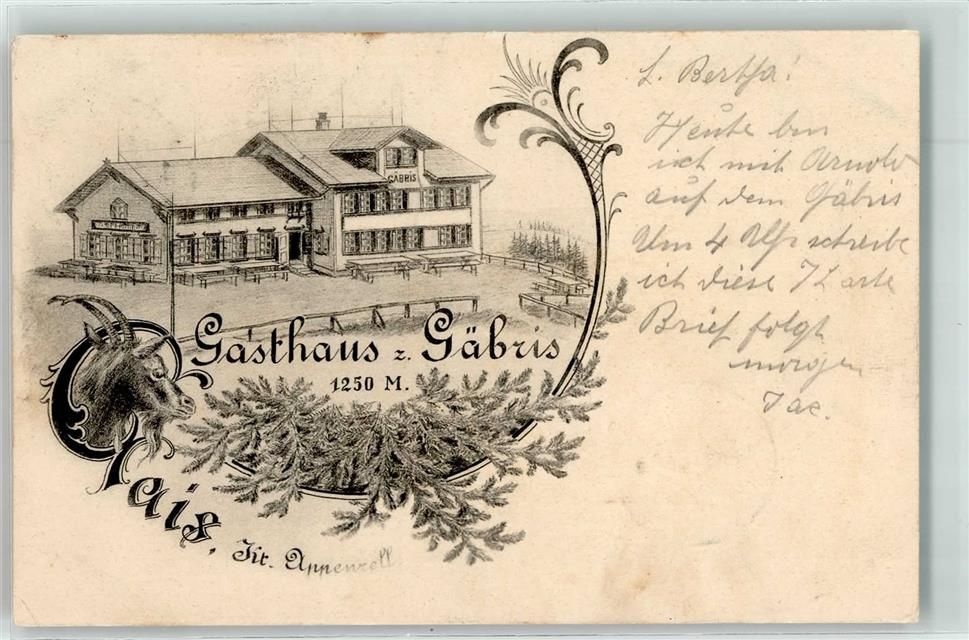 GÄBRIS
Gasthaus z. Gäbris
1250 M.
Gais,
Kt. Appenzell
L. Bertha!
Heute bin
ich mit Arnold
auf dem Gäbris
Um 4 Uhr schreibe
ich diese Karte
Brief folgt
morgen
Jac.